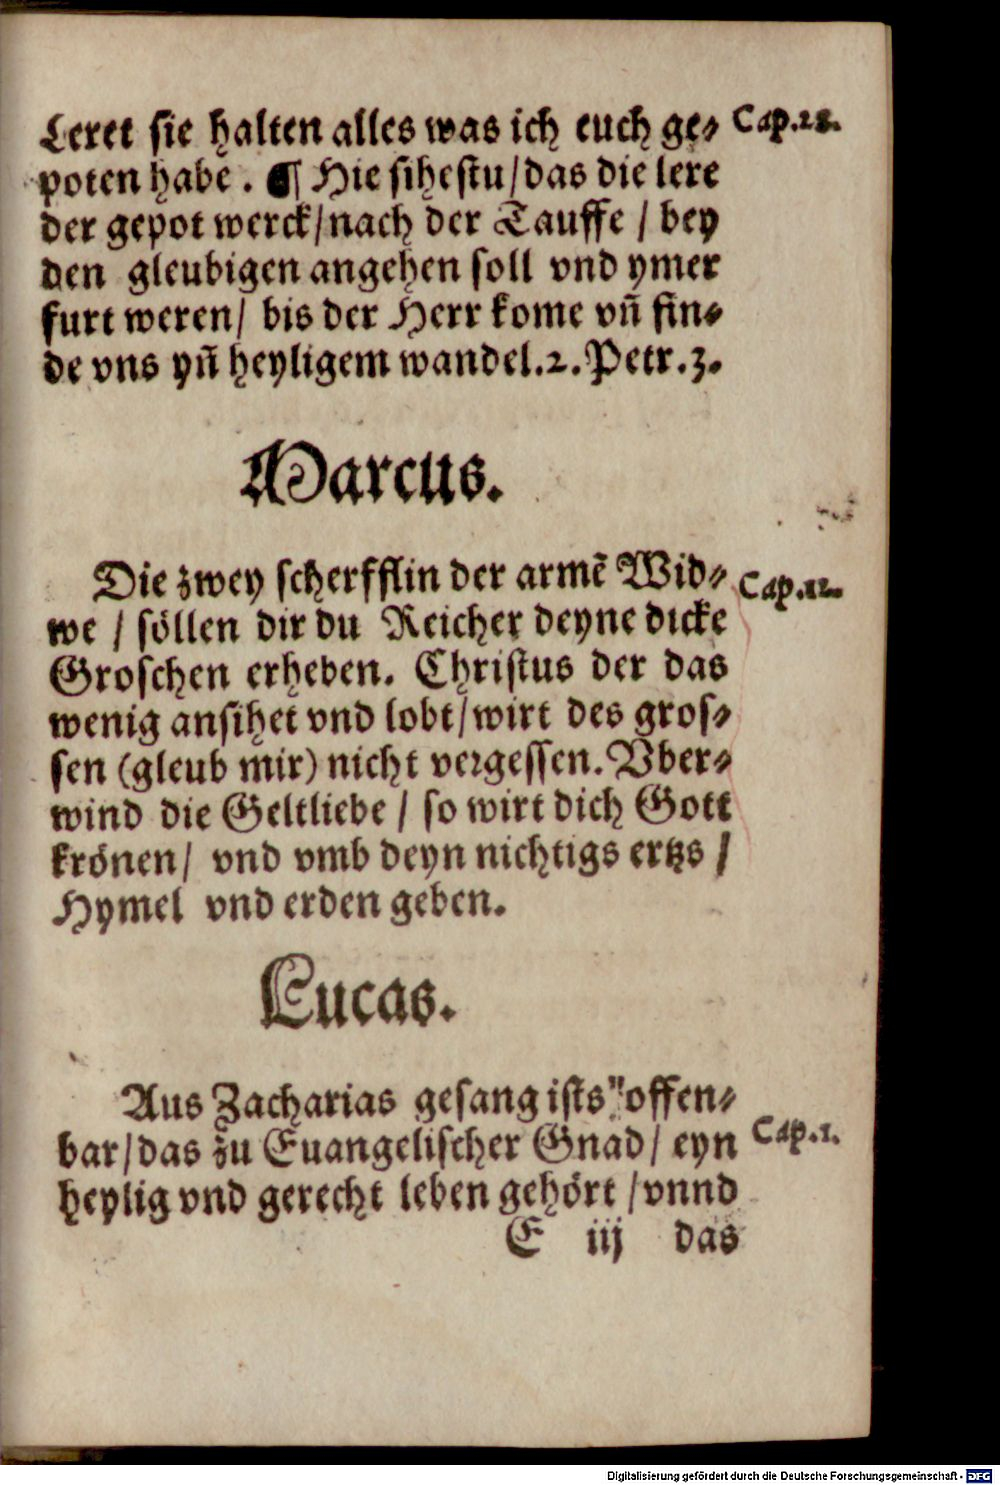 Leret sie halten alles was ich euch ge⸗ Cap.28.
poten habe . ¶ Hie sihestu/das die lere
der gepot werck/nach der Tauffe / bey
den gleubigen angehen soll vnd ymer
furt weren/ bis der Herr kome vñ fin⸗
de vns yñ heyligem wandel.2.Petr.3.
Marcus.
Die zwey scherfflin der armẽ Wid⸗ Cap.12.
we / söllen dir du Reicher deyne dicke
Groschen erheben. Christus der das
wenig ansihet vnd lobt/wirt des gros⸗
sen (gleub mir) nicht vergessen. Vber⸗
wind die Geltliebe / so wirt dich Gott
krönen/ vnd vmb deyn nichtigs ertzs /
Hymel vnd erden geben.
Lucas.
Aus Zacharias gesang ists offen⸗
bar/das zu Euangelischer Gnad/ eyn Cap.1.
heylig vnd gerecht leben gehört /vnnd
E iij das
Digitalisierung gefördert durch die Deutsche Forschungsgemeinschaft - DFG